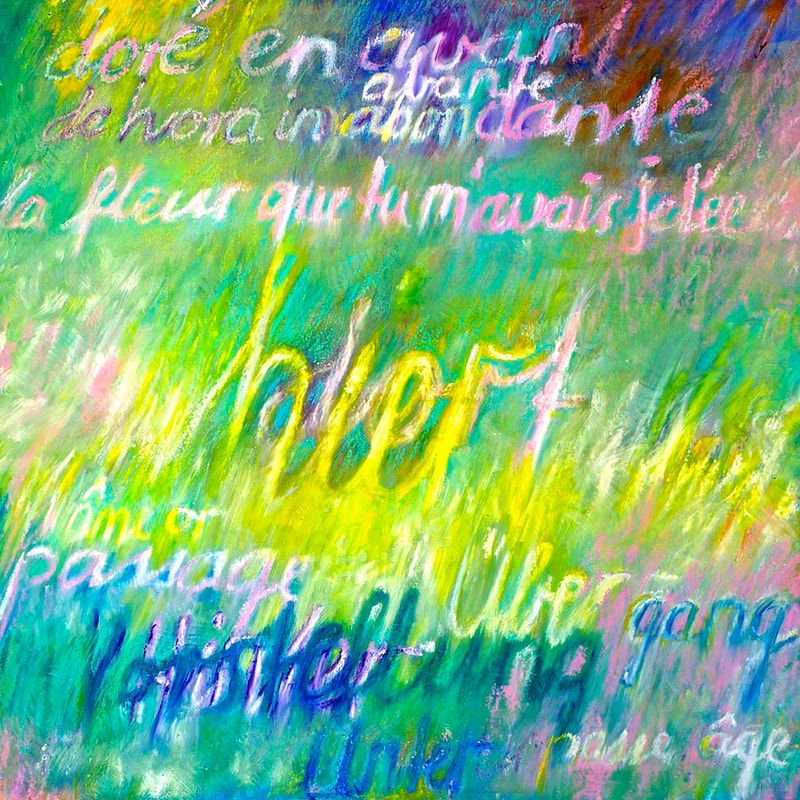 doré en avant
abante
dehors in abondante
la fleur que tu m'avais jetée
hiert
l'âme or
passage Über gang
Hinter
Unter passe âge